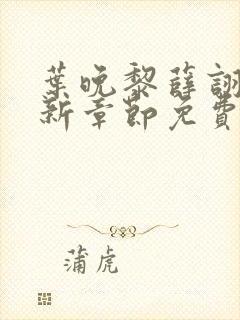 葉晚黎薛詡
新章節免費
蒲虎